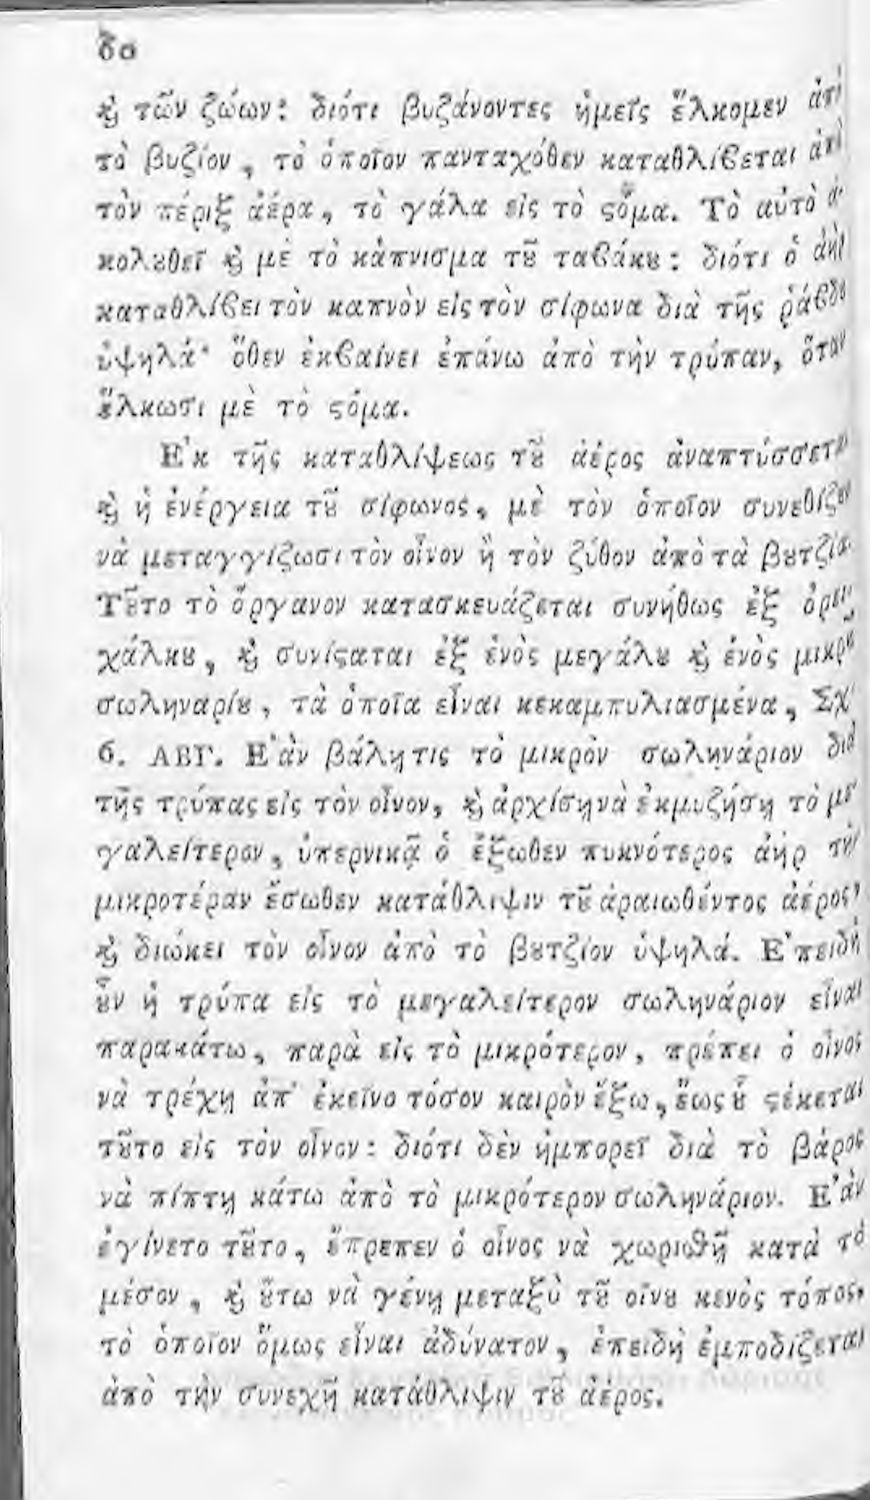 δα
ϗ τῶν ζώων: διότι βυζάνοντες ἡμεῖς ἕλκομεν ἀπὸ
τὸ βυζίον, τὸ ὁποῖον πανταχόθεν καταθλίϐεται ἀπὸ
τὸν πέριξ ἀέρα, τὸ γάλα εἰς τὸ ϛόμα. Τὸ αὐτὸ ἀ-
κολȣθεῖ ϗ μὲ τὸ κάπνισμα τȣ͂ ταϐάκȣ: διότι ὁ ἀὴρ
καταθλίϐει τὸν καπνὸν εἰς τὸν σίφωνα διὰ τῆς ῥάϐδȣ
ὑψηλά· ὅθεν ἐκϐαίνει ἐπάνω ἀπὸ τὴν τρύπαν, ὅταν
ἕλκωσι μὲ τὸ ϛόμα.
Ἐκ τῆς καταθλίψεως τȣ͂ ἀέρος ἀναπτύσσεται
ϗ ἡ ἐνέργεια τȣ͂ σίφωνος, μὲ τὸν ὁποῖον συνεθίζȣν
νὰ μεταγγίζωσι τὸν οἶνον ἢ τὸν ζύθον ἀπὸ τὰ βȣτζία.
Τȣ͂το τὸ ὄργανον κατασκευάζεται συνήθως ἐξ ὀρει-
χάλκȣ, ϗ συνίϛαται ἐξ ἑνὸς μεγάλȣ ϗ ἑνὸς μικρȣ͂
σωληναρίȣ, τὰ ὁποῖα εἶναι κεκαμπυλιασμένα, Σχ.
6. ΑΒΓ. Ἐὰν βάλῃ τις τὸ μικρὸν σωληνάριον διὰ
τῆς τρύπας εἰς τὸν οἶνον, ϗ ἀρχίσῃ νὰ ἐκμυζήσῃ τὸ με-
γαλείτερον, ὑπερνικᾷ ὁ ἔξωθεν πυκνότερος ἀὴρ τὴν
μικροτέραν ἔσωθεν κατάθλιψιν τȣ͂ ἀραιωθέντος ἀέρος,
ϗ διώκει τὸν οἶνον ἀπὸ τὸ βȣτζίον ὑψηλά. Ἐπειδὴ
ȣ̓͂ν ἡ τρύπα εἰς τὸ μεγαλείτερον σωληνάριον εἶναι
παρακάτω, παρὰ εἰς τὸ μικρότερον, πρέπει ὁ οἶνος
νὰ τρέχῃ ἀπ' ἐκεῖνο τόσον καιρὸν ἔξω, ἕως ȣ̔͂ ϛέκεται
τȣ͂το εἰς τὸν οἶνον: διότι δὲν ἠμπορεῖ διὰ τὸ βάρος
νὰ πίπτῃ κάτω ἀπὸ τὸ μικρότερον σωληνάριον. Ἐὰν
ἐγίνετο τȣ͂το, ἔπρεπεν ὁ οἶνος νὰ χωρισθῇ κατὰ τὸ
μέσον, ϗ ȣ̔́τω νὰ γένῃ μεταξὺ τȣ͂ οἴνȣ κενὸς τόπος,
τὸ ὁποῖον ὅμως εἶναι ἀδύνατον, ἐπειδὴ ἐμποδίζεται
ἀπὸ τὴν συνεχῆ κατάθλιψιν τȣ͂ ἀέρος.